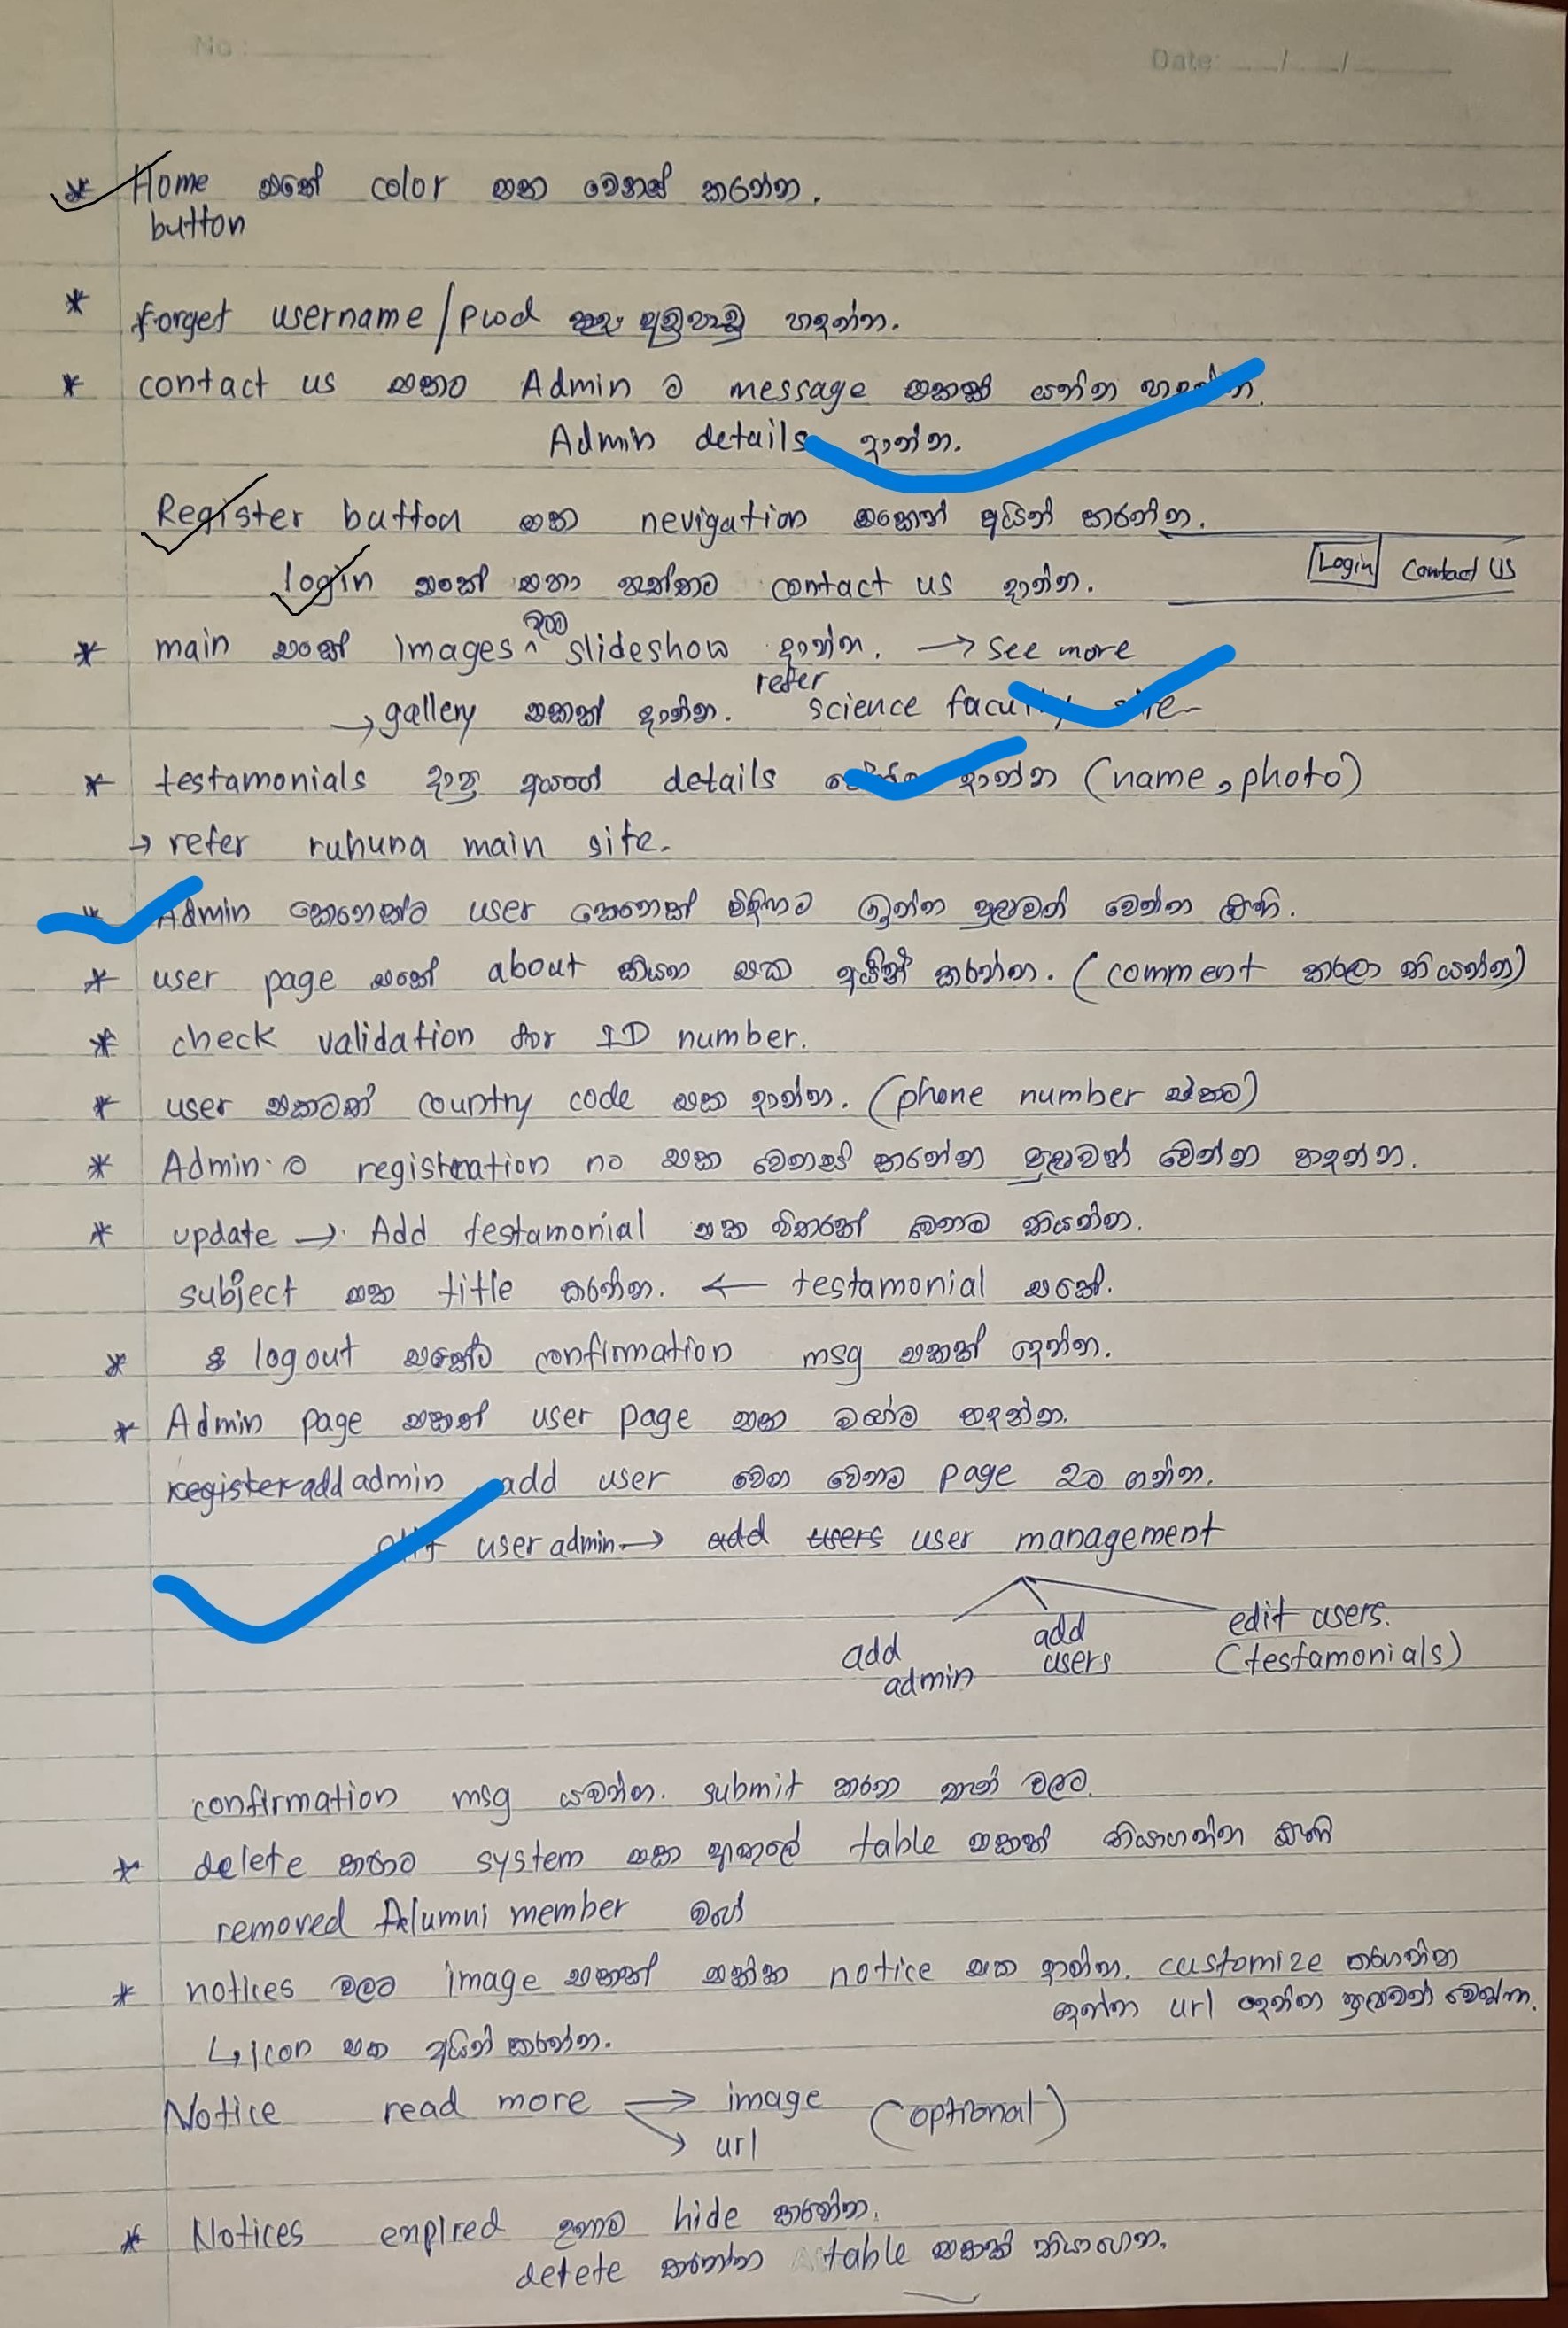 No :
Date: / /
Home එකේ color එක වෙනස් කරන්න.
button
forget username/pwd අඩුපාඩු හදන්න.
contact us එකට Admin ට message එකක් යන්න හදන්න.
Admin details දාන්න.
Register button එක nevigation එකෙන් අයින් කරන්න.
login එකේ එහා පැත්තට contact us දාන්න.
Login Contact US
main එකේ Images slideshow දාන්න. → see more
→ gallery එකක් දාන්න. refer science faculty site
testamonials දාපු අයගේ details දාන්න (name, photo)
→ refer ruhuna main site.
Admin කෙනෙක්ට user කෙනෙක් විදිහට ඉන්න පුළුවන් වෙන්න ඕනි.
user page එකේ about කියන එක අයින් කරන්න. (comment කරලා තියන්න)
check validation for ID number.
user එකටත් country code එක දාන්න. (phone number එකට)
Admin ට registration no එක වෙනස් කරන්න පුළුවන් වෙන්න හදන්න.
update → Add testamonial එක විතරක් වෙනම තියන්න.
subject එක title කරන්න. ← testamonial එකේ.
logout එකේට confirmation msg එකක් දෙන්න.
Admin page එකත් user page එක වගේම හදන්න.
register add admin add user වෙන වෙනම page 2ට ගන්න.
user admin → add users user management
add admin
add users
edit users.
(testamonials)
confirmation msg යවන්න. submit කරන තැන් වලට.
delete කරාට system එක ඇතුලේ table එකක් තියාගන්න ඕනි
removed Alumni member වගේ
notices වලට image එකක් එක්ක notice එක දාන්න. customize කරගන්න
දෙන්න url දෙන්න පුළුවන් වෙන්න.
↳ Icon එක අයින් කරන්න.
Notice read more → image (optional)
→ url
Notices enpired උනාම hide කරන්න.
detete කරන්න table එකක් තියාගන්න.